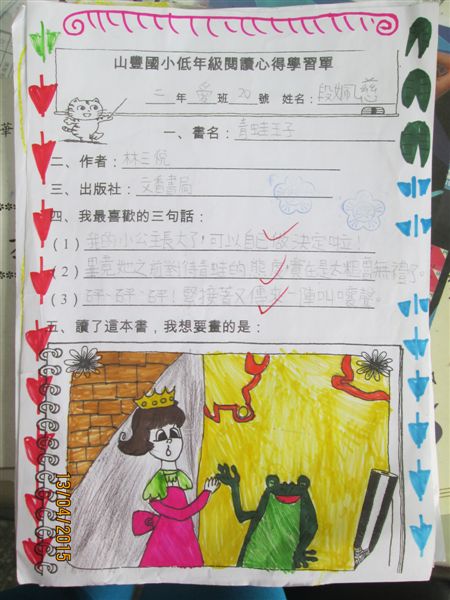 山豐國小低年級閱讀心得學習單
二年愛班20號 姓名：段姵慈
一、書名：青蛙王子
二、作者：林三悅
三、出版社：文香書局
四、我最喜歡的三句話：
(1) 我的小公主長大了，可以自己做決定啦！
(2) 畢竟她之前對待青蛙的態度，實在是太粗魯無禮了。
(3) 砰、砰、砰！緊接著又傳來一陣叫嚷聲。
五、讀了這本書，我想要畫的是：
13/04/2015